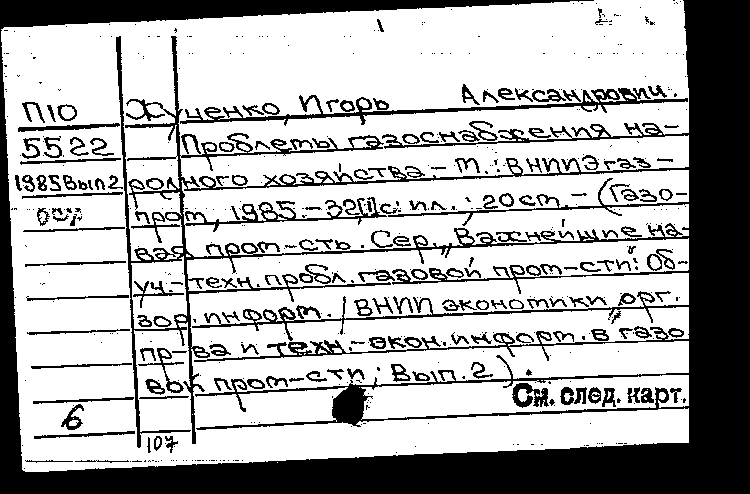 П10 Жученко, Игорь Александрович.
5522 Проблемы газоснабжения на-
1985 Вып.2 родного хозяйства. – М.: ВНИИЭгаз-
пром, 1985. – 32 с.: ил.; 20 см. – (Газо-
вая пром-сть. Сер. „Важнейшие на-
уч.-техн. пробл. газовой пром-сти": Об-
зор. информ. / ВНИИ экономики, орг.
пр-ва и техн.-экон. информ. в газо
вой пром-сти; Вып. 2).
См. след. карт.
6
107